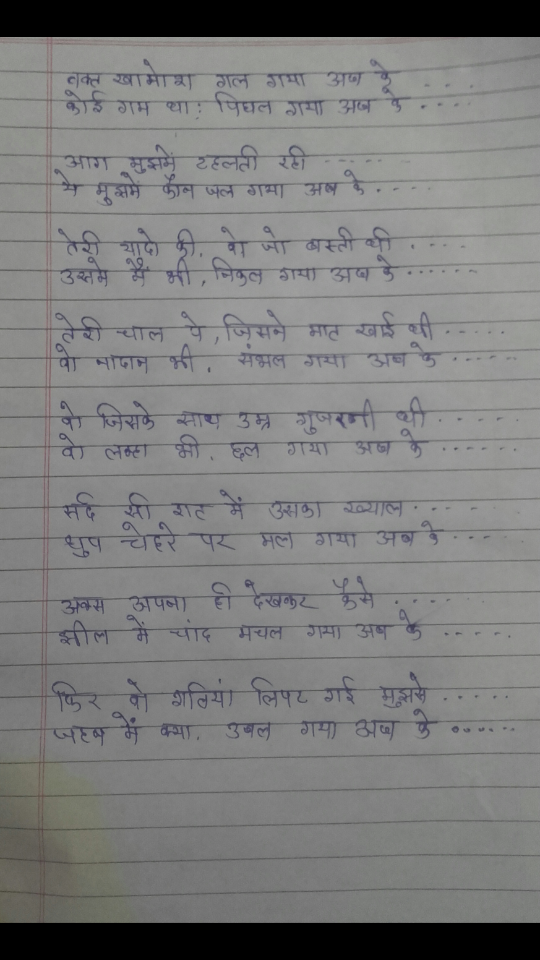 वक्त खामोश गल गया अब के . . . .
कोई गम था : पिघल गया अब के . . . .
आग मुझमें टहलती रही . . . . . . . .
ये मुझमें कौन जल गया अब के . . . .
तेरी यादो की, वो जो बस्ती थी . . . . .
उसमे मैं भी, निकल गया अब के . . . . . .
तेरी चाल पे, जिसने मात खाई थी . . . . .
वो नादान भी, संभल गया अब के . . . . . .
वो जिसके साथ उम्र गुजरनी थी . . . . . .
वो लम्हा भी, छल गया अब के . . . . . .
सर्द सी रात में उसका ख्याल . . . . . .
धुप चेहरे पर मल गया अब के . . . . .
अक्स अपना ही देखकर कैसे . . . . . .
झील में चांद मचल गया अब के . . . . .
फिर वो गलियां लिपट गई मुझसे . . . . .
जहन में क्या, उबल गया अब के . . . . . .